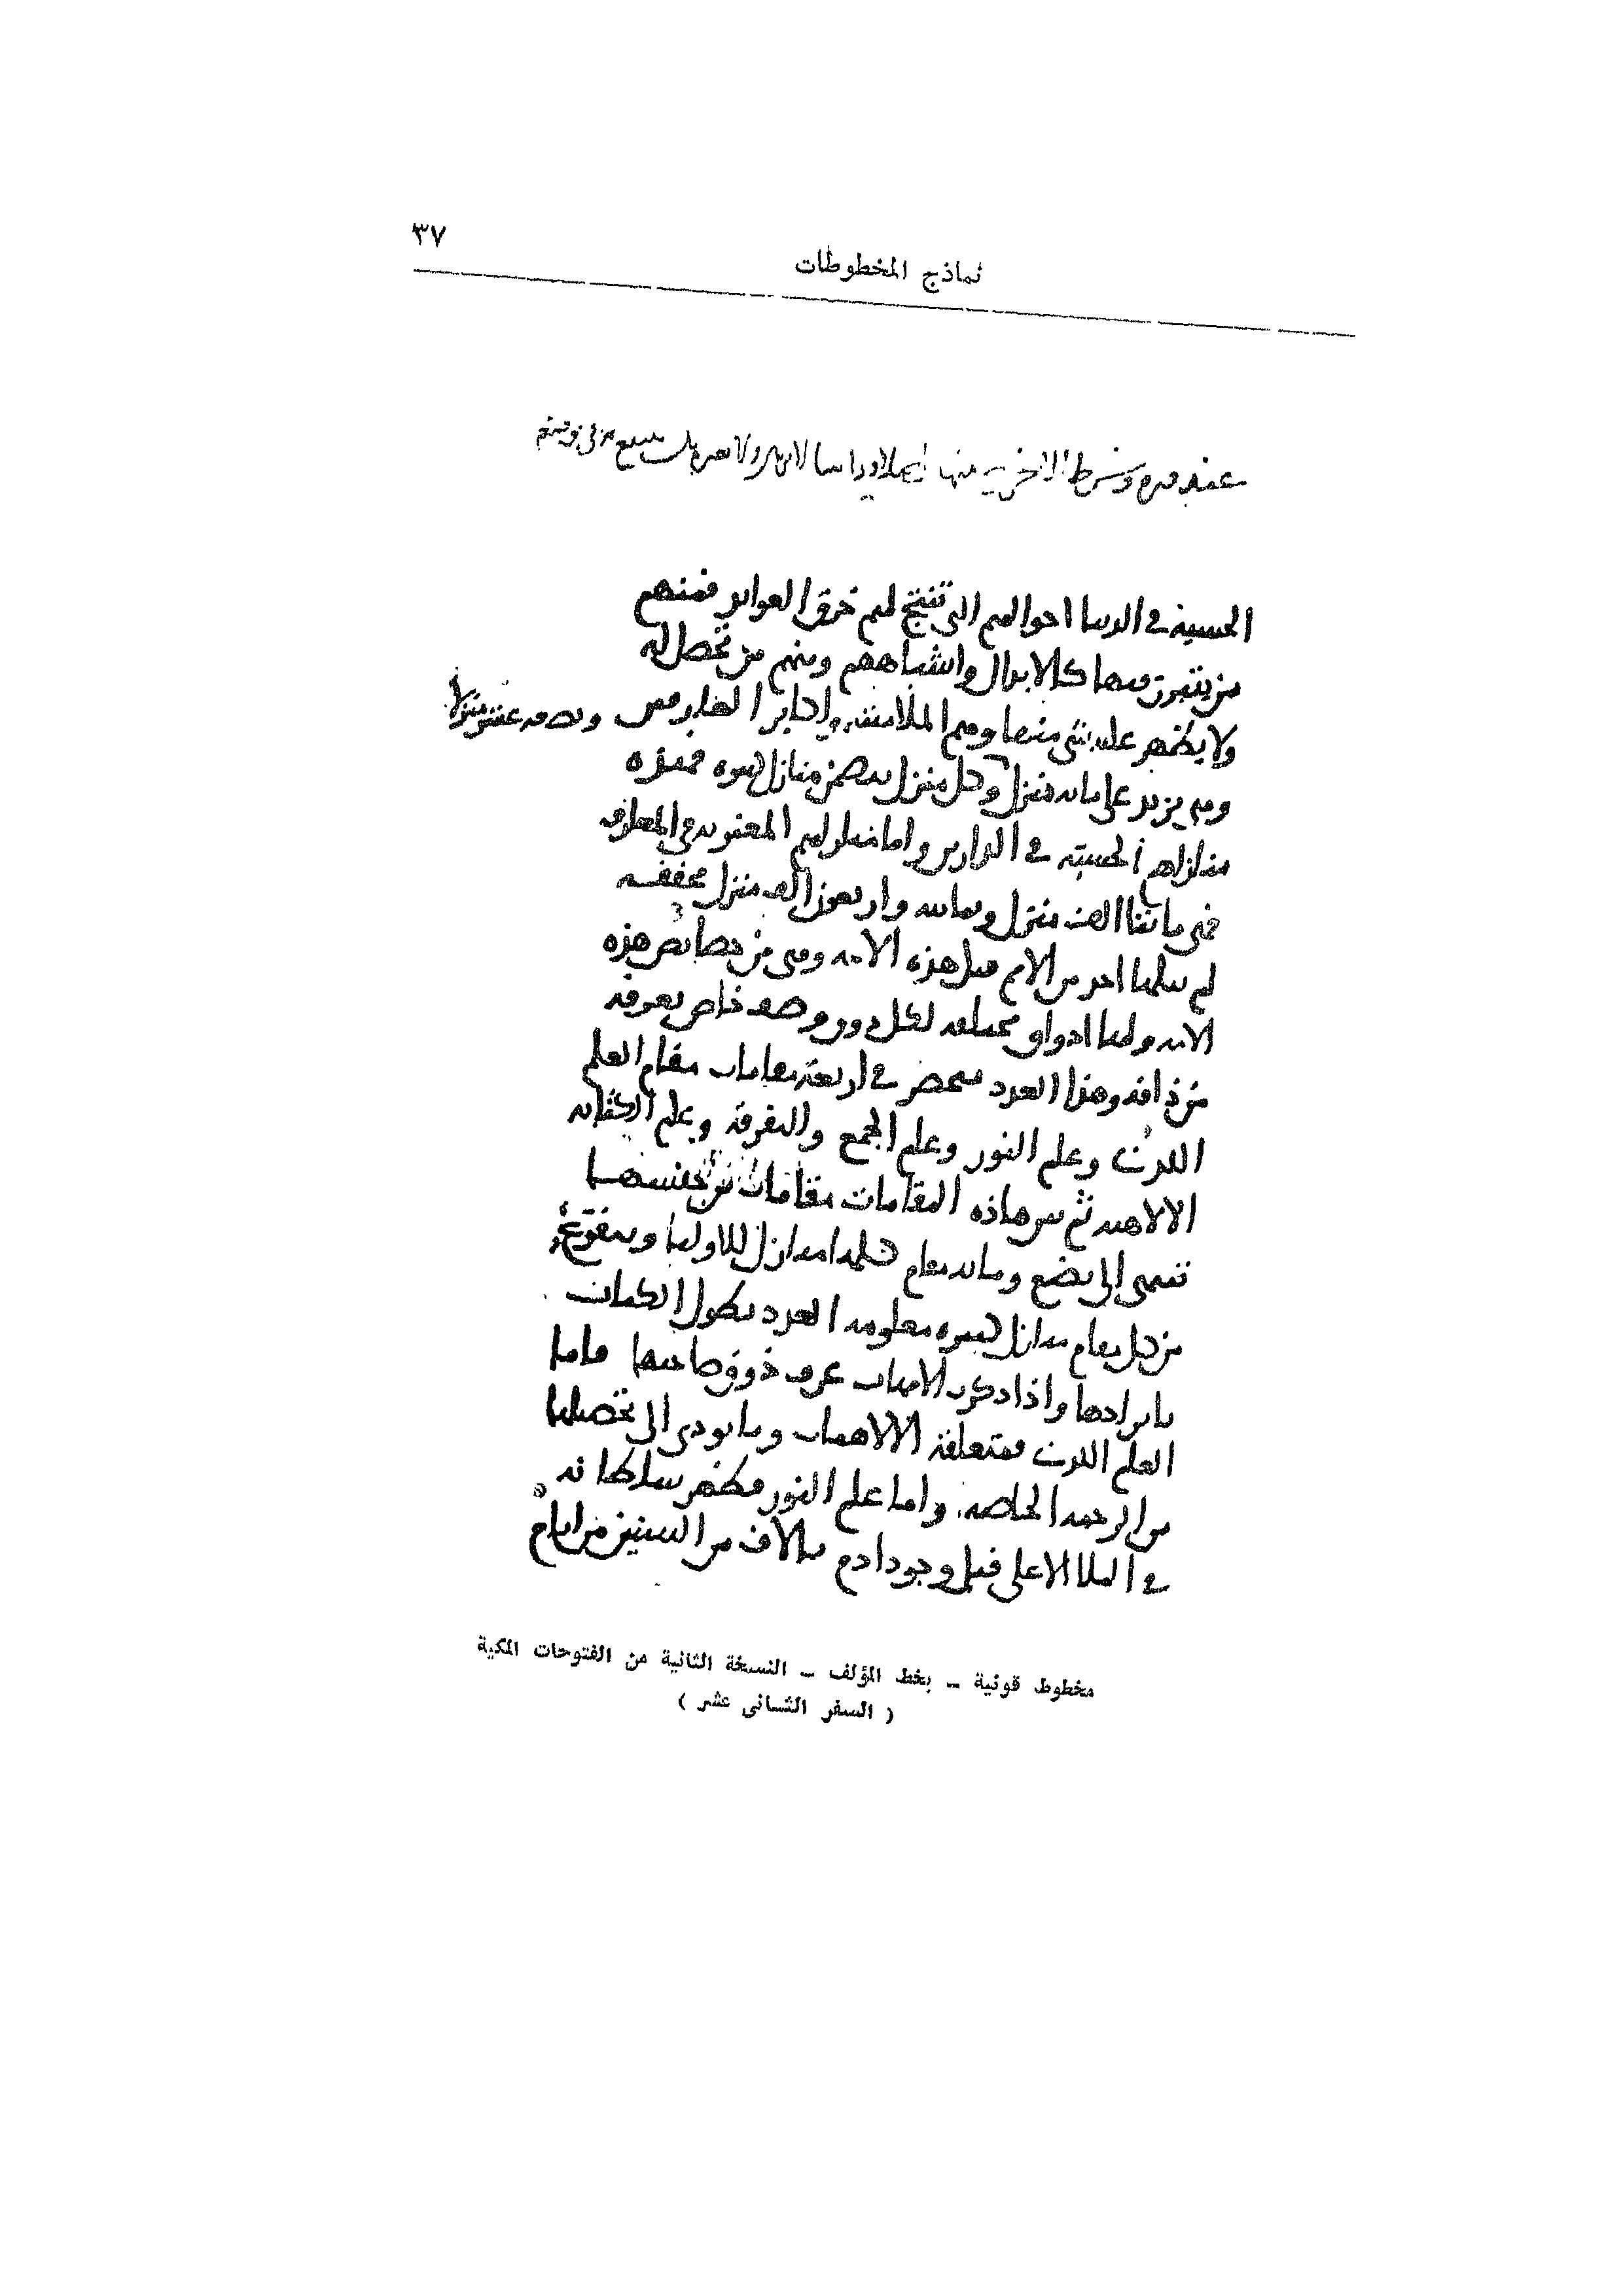 ٣٧
نماذج المخطوطات
الحسية في الدنيا احوالهم التي تنتج لهم خرق العوايد فمنهم
من يتبرز فيها كالابدال واشباههم ومنهم من تحصل له
ولا يظهر عليه شي منها وهم الملامتيه واكابر العارفين وهي
وهي تزيد على مايه منزل وكل منزل يتضمن منازل كثيره فهذه
منازلهم الحسية في الدارين واما منازلهم المعنويه في المعارف
فهي مائتا الف منزل وثمانيه واربعون الف منزل محققه
لم ينلها احد من الامم قبل هذه الامه وهي من خصائص هذه
الامه ولها اذواق مختلفه لكل ذوق وصف خاص يعرفه
من ذاقه وهذا العدد منحصر في اربعة مقامات مقام العلم
اللدني وعلم النور وعلم الجمع والتفرقة وعلم الكتابه
الالاهيه ثم بين هاذه المقامات مقامات من جنسها
تنتهي الى بضع ومايه مقام كلها منازل للاوليا ويتفرع
من كل مقام منازل كثيره معلومه العدد يطول الكتاب
بايرادها واذا ذكرت الامهات عرف ذوق صاحبها فاما
العلم اللدني فمتعلقه الالاهيات وما يودي الى تحصيلها
من الرحمه الخاصه واما علم النور فظهر سلطانه
في الملا الاعلى قبل وجود ادم بالاف من السنين من ايام
مخطوط قونية – بخط المؤلف – النسخة الثانية من الفتوحات المكية
( السفر الثاني عشر )